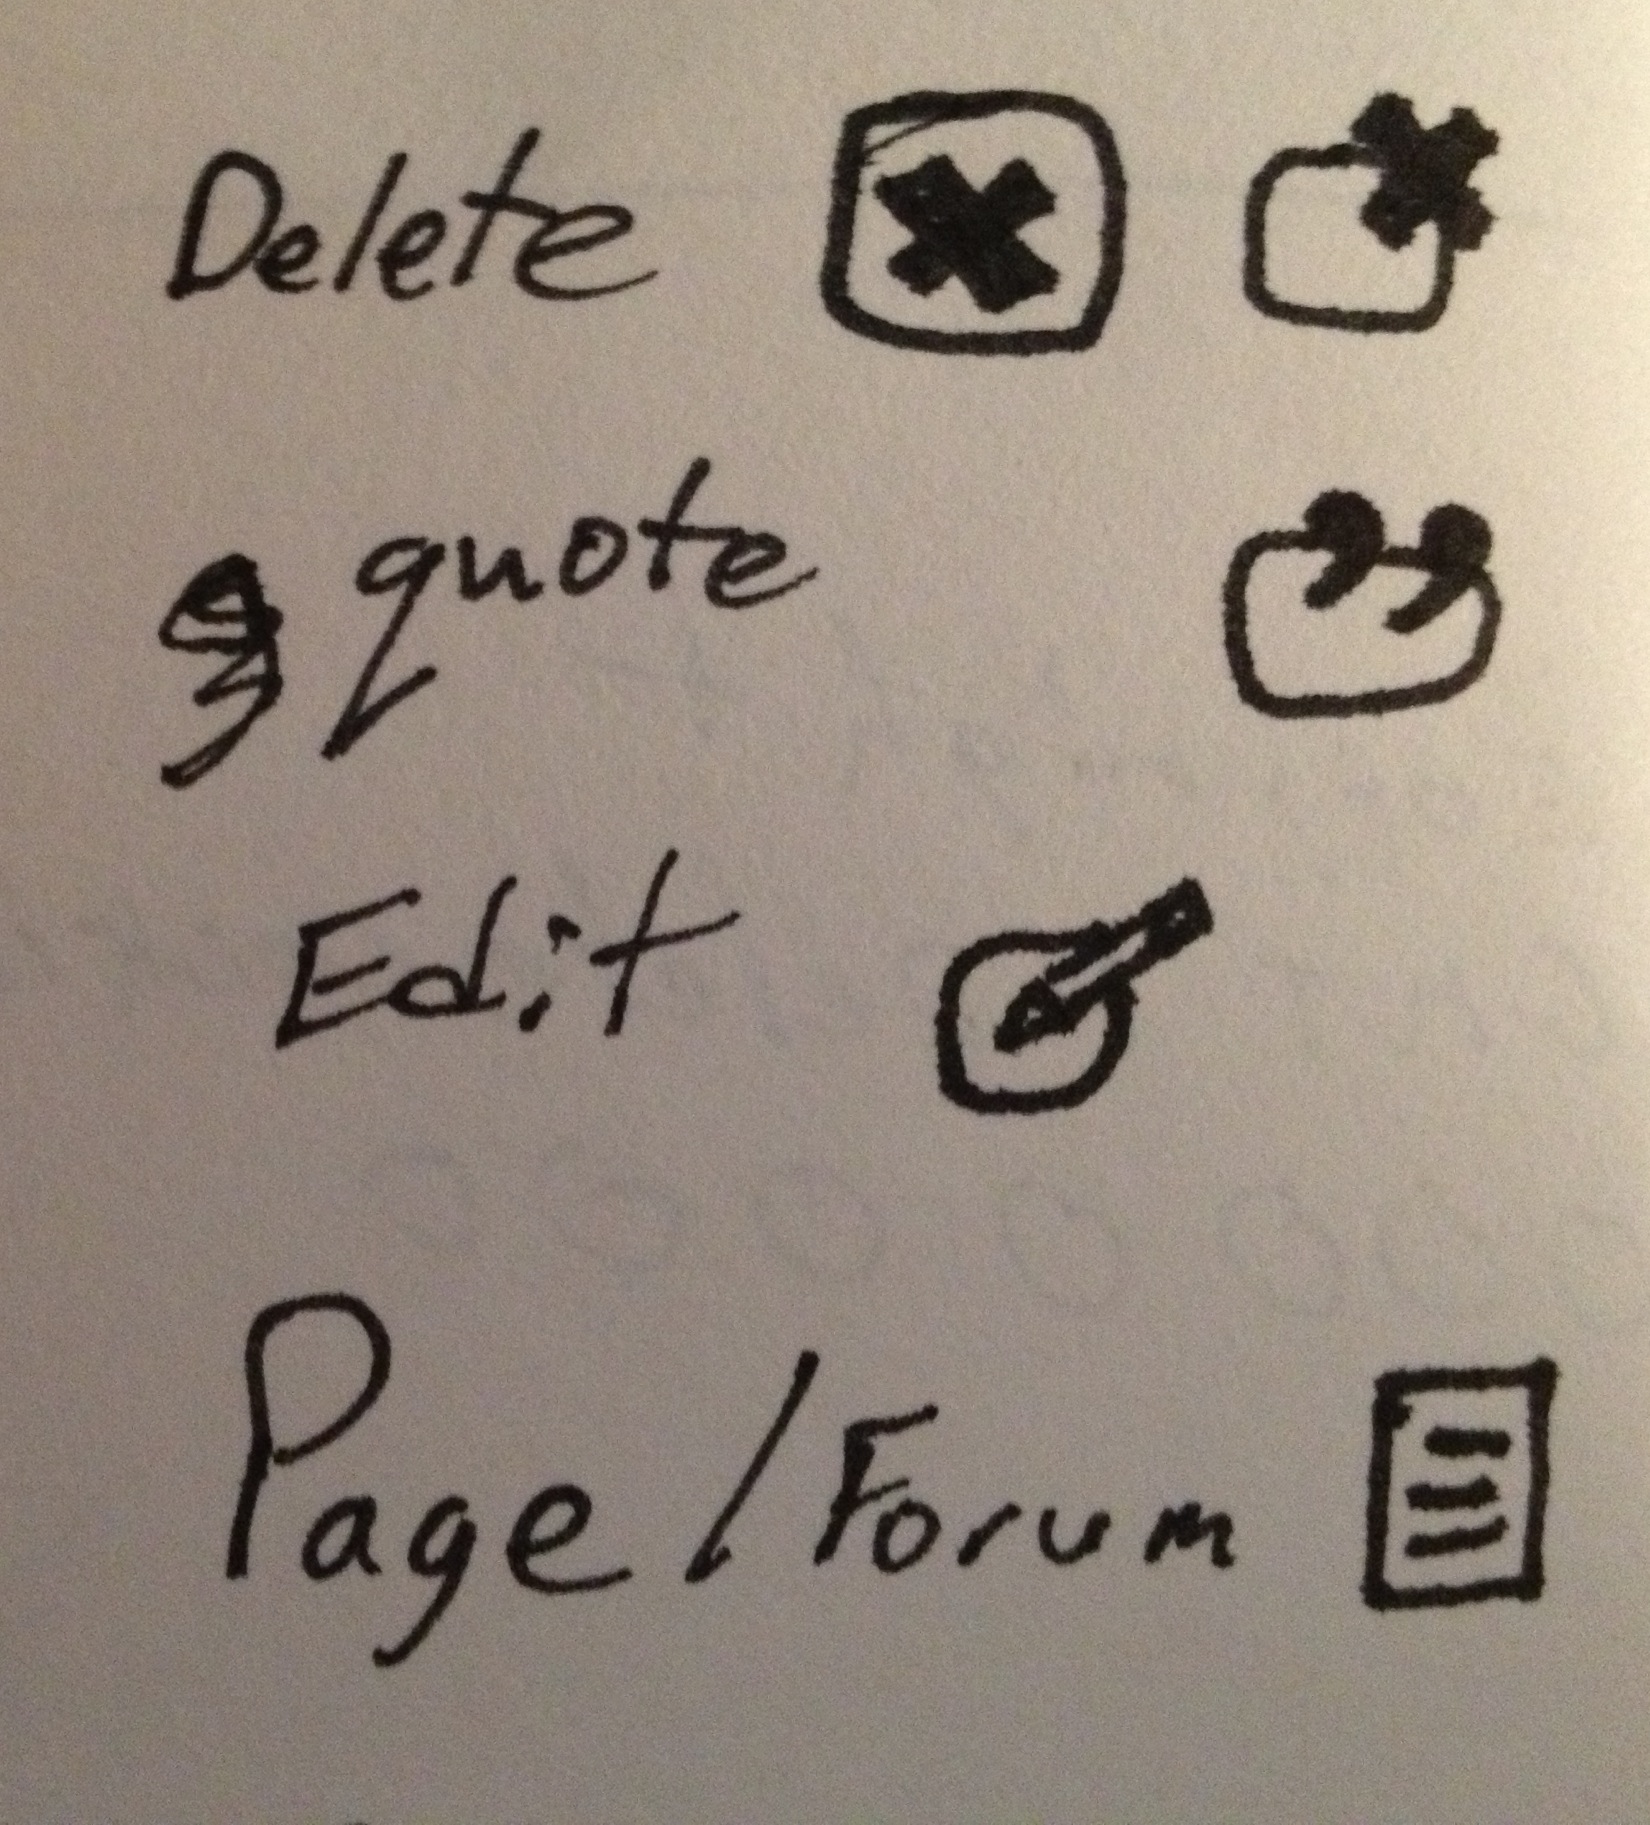 Delete
quote
Edit
Page / Forum